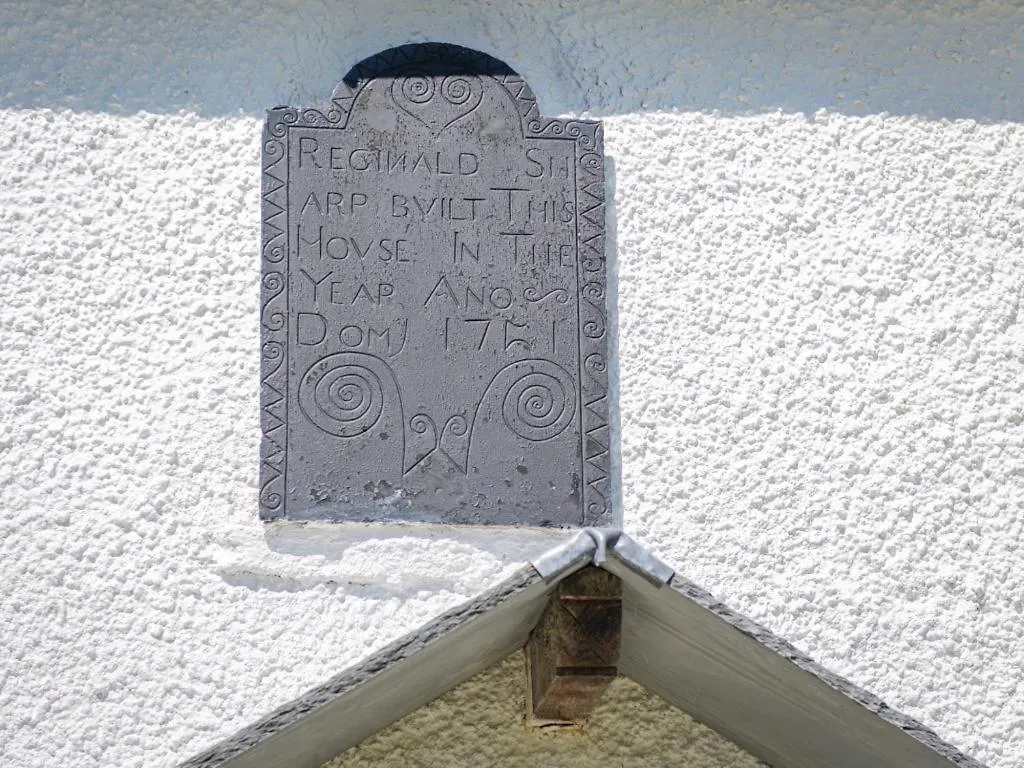 REGINALD SH
ARP BVILT THIS
HOVSE IN THE
YEAR ANO
DOMJ 1751